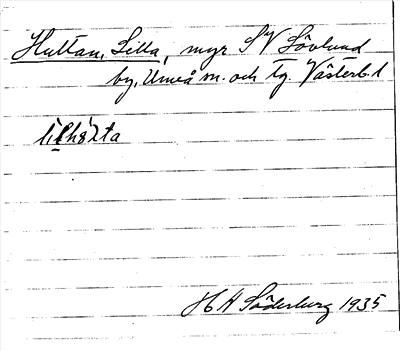 Hultan, Lilla, myr SV Sövlund
by, Umeå sn. och tg. Västerb. l
H H Söderberg 1935